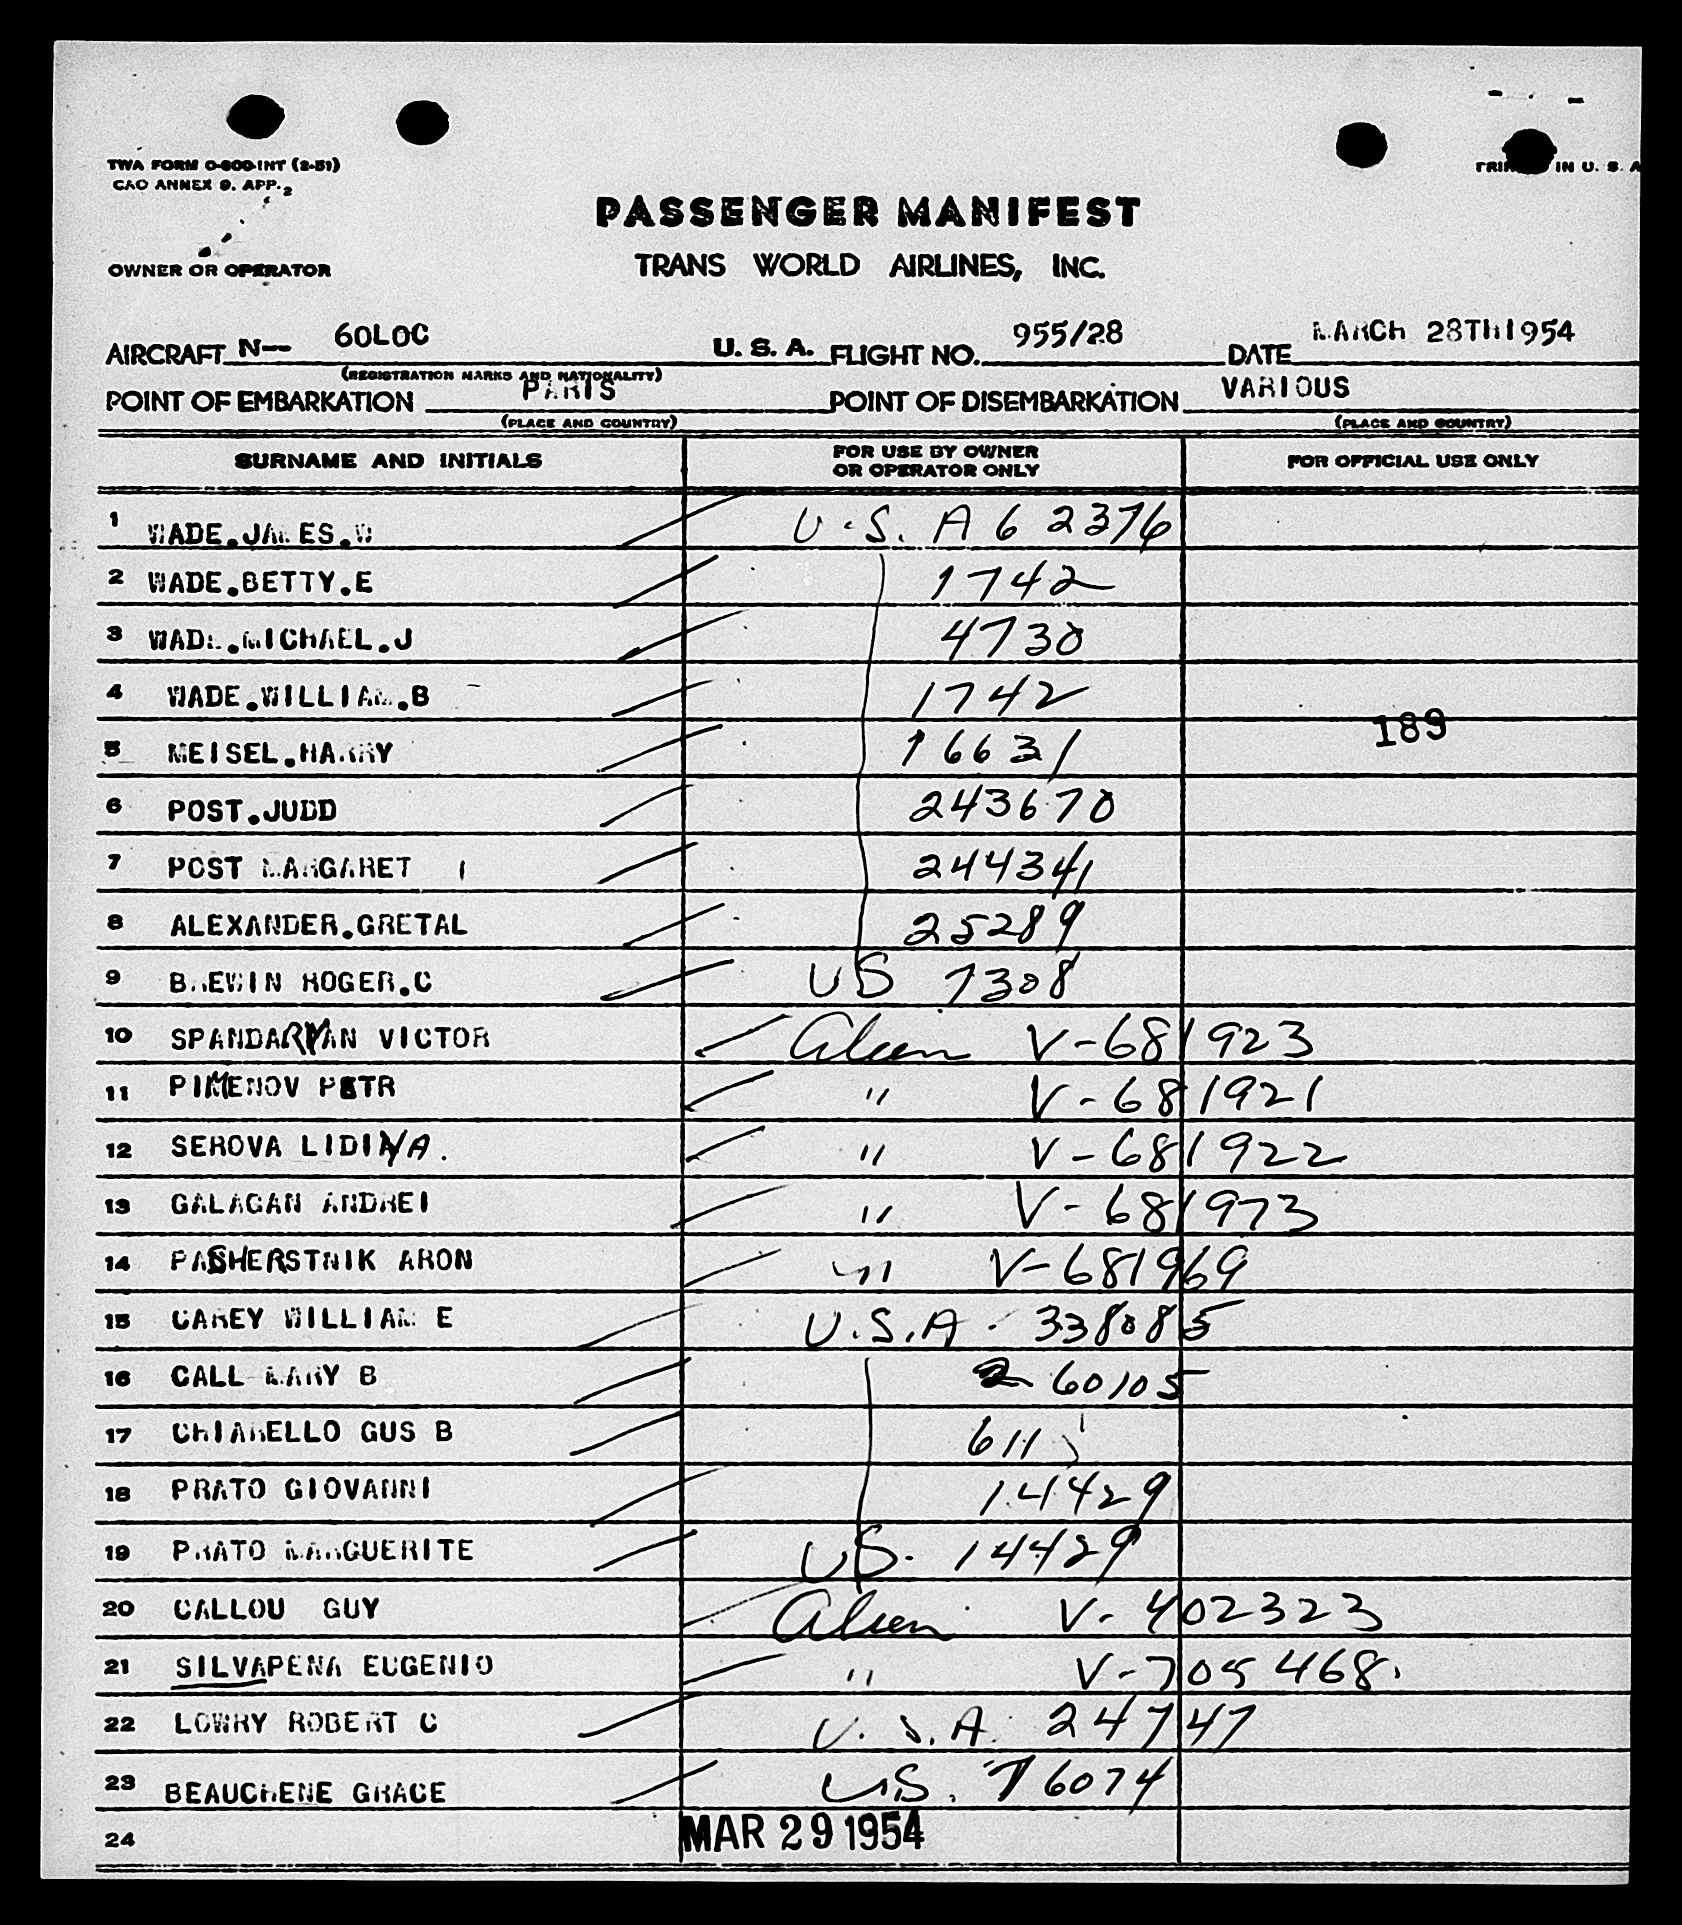 TWA FORM O-800-INT (2-51)
CAO ANNEX 9. APP. 2
IN U. S. A
PASSENGER MANIFEST
TRANS WORLD AIRLINES, INC.
OWNER OR OPERATOR
AIRCRAFT N— 60LOC U. S. A. FLIGHT NO. 955/28 DATE MARCH 28TH1954
(REGISTRATION MARKS AND NATIONALITY)
POINT OF EMBARKATION PARIS POINT OF DISEMBARKATION VARIOUS
(PLACE AND COUNTRY) (PLACE AND COUNTRY)
SURNAME AND INITIALS FOR USE BY OWNER OR OPERATOR ONLY FOR OFFICIAL USE ONLY
1 WADE.JAMES.W U.S. A 6 2376
2 WADE.BETTY.E 1742
3 WADE.MICHAEL.J 4730
4 WADE.WILLIAM.B 1742
189
5 MEISEL.HARRY 16631
6 POST.JUDD 243670
7 POST MARGARET 244341
8 ALEXANDER.GRETAL 25289
9 BREWIN ROGER.C US 7308
10 SPANDARYAN VICTOR Alien V-681923
11 PIMENOV PETR " V-681921
12 SEROVA LIDIYA. " V-681922
13 GALAGAN ANDREI " V-681973
14 PASHERSTNIK ARON " V-681969
15 CAREY WILLIAM E U.S.A. 338085
16 CALL MARY B 260105
17 CHIARELLO GUS B 611
18 PRATO GIOVANNI 14429
19 PRATO MARGUERITE US. 14429
20 CALLOU GUY Alien V-402323
21 SILVAPENA EUGENIO " V-705468.
22 LOWRY ROBERT C U.S.A. 24747
23 BEAUCHENE GRACE US. 76074
24 MAR 29 1954